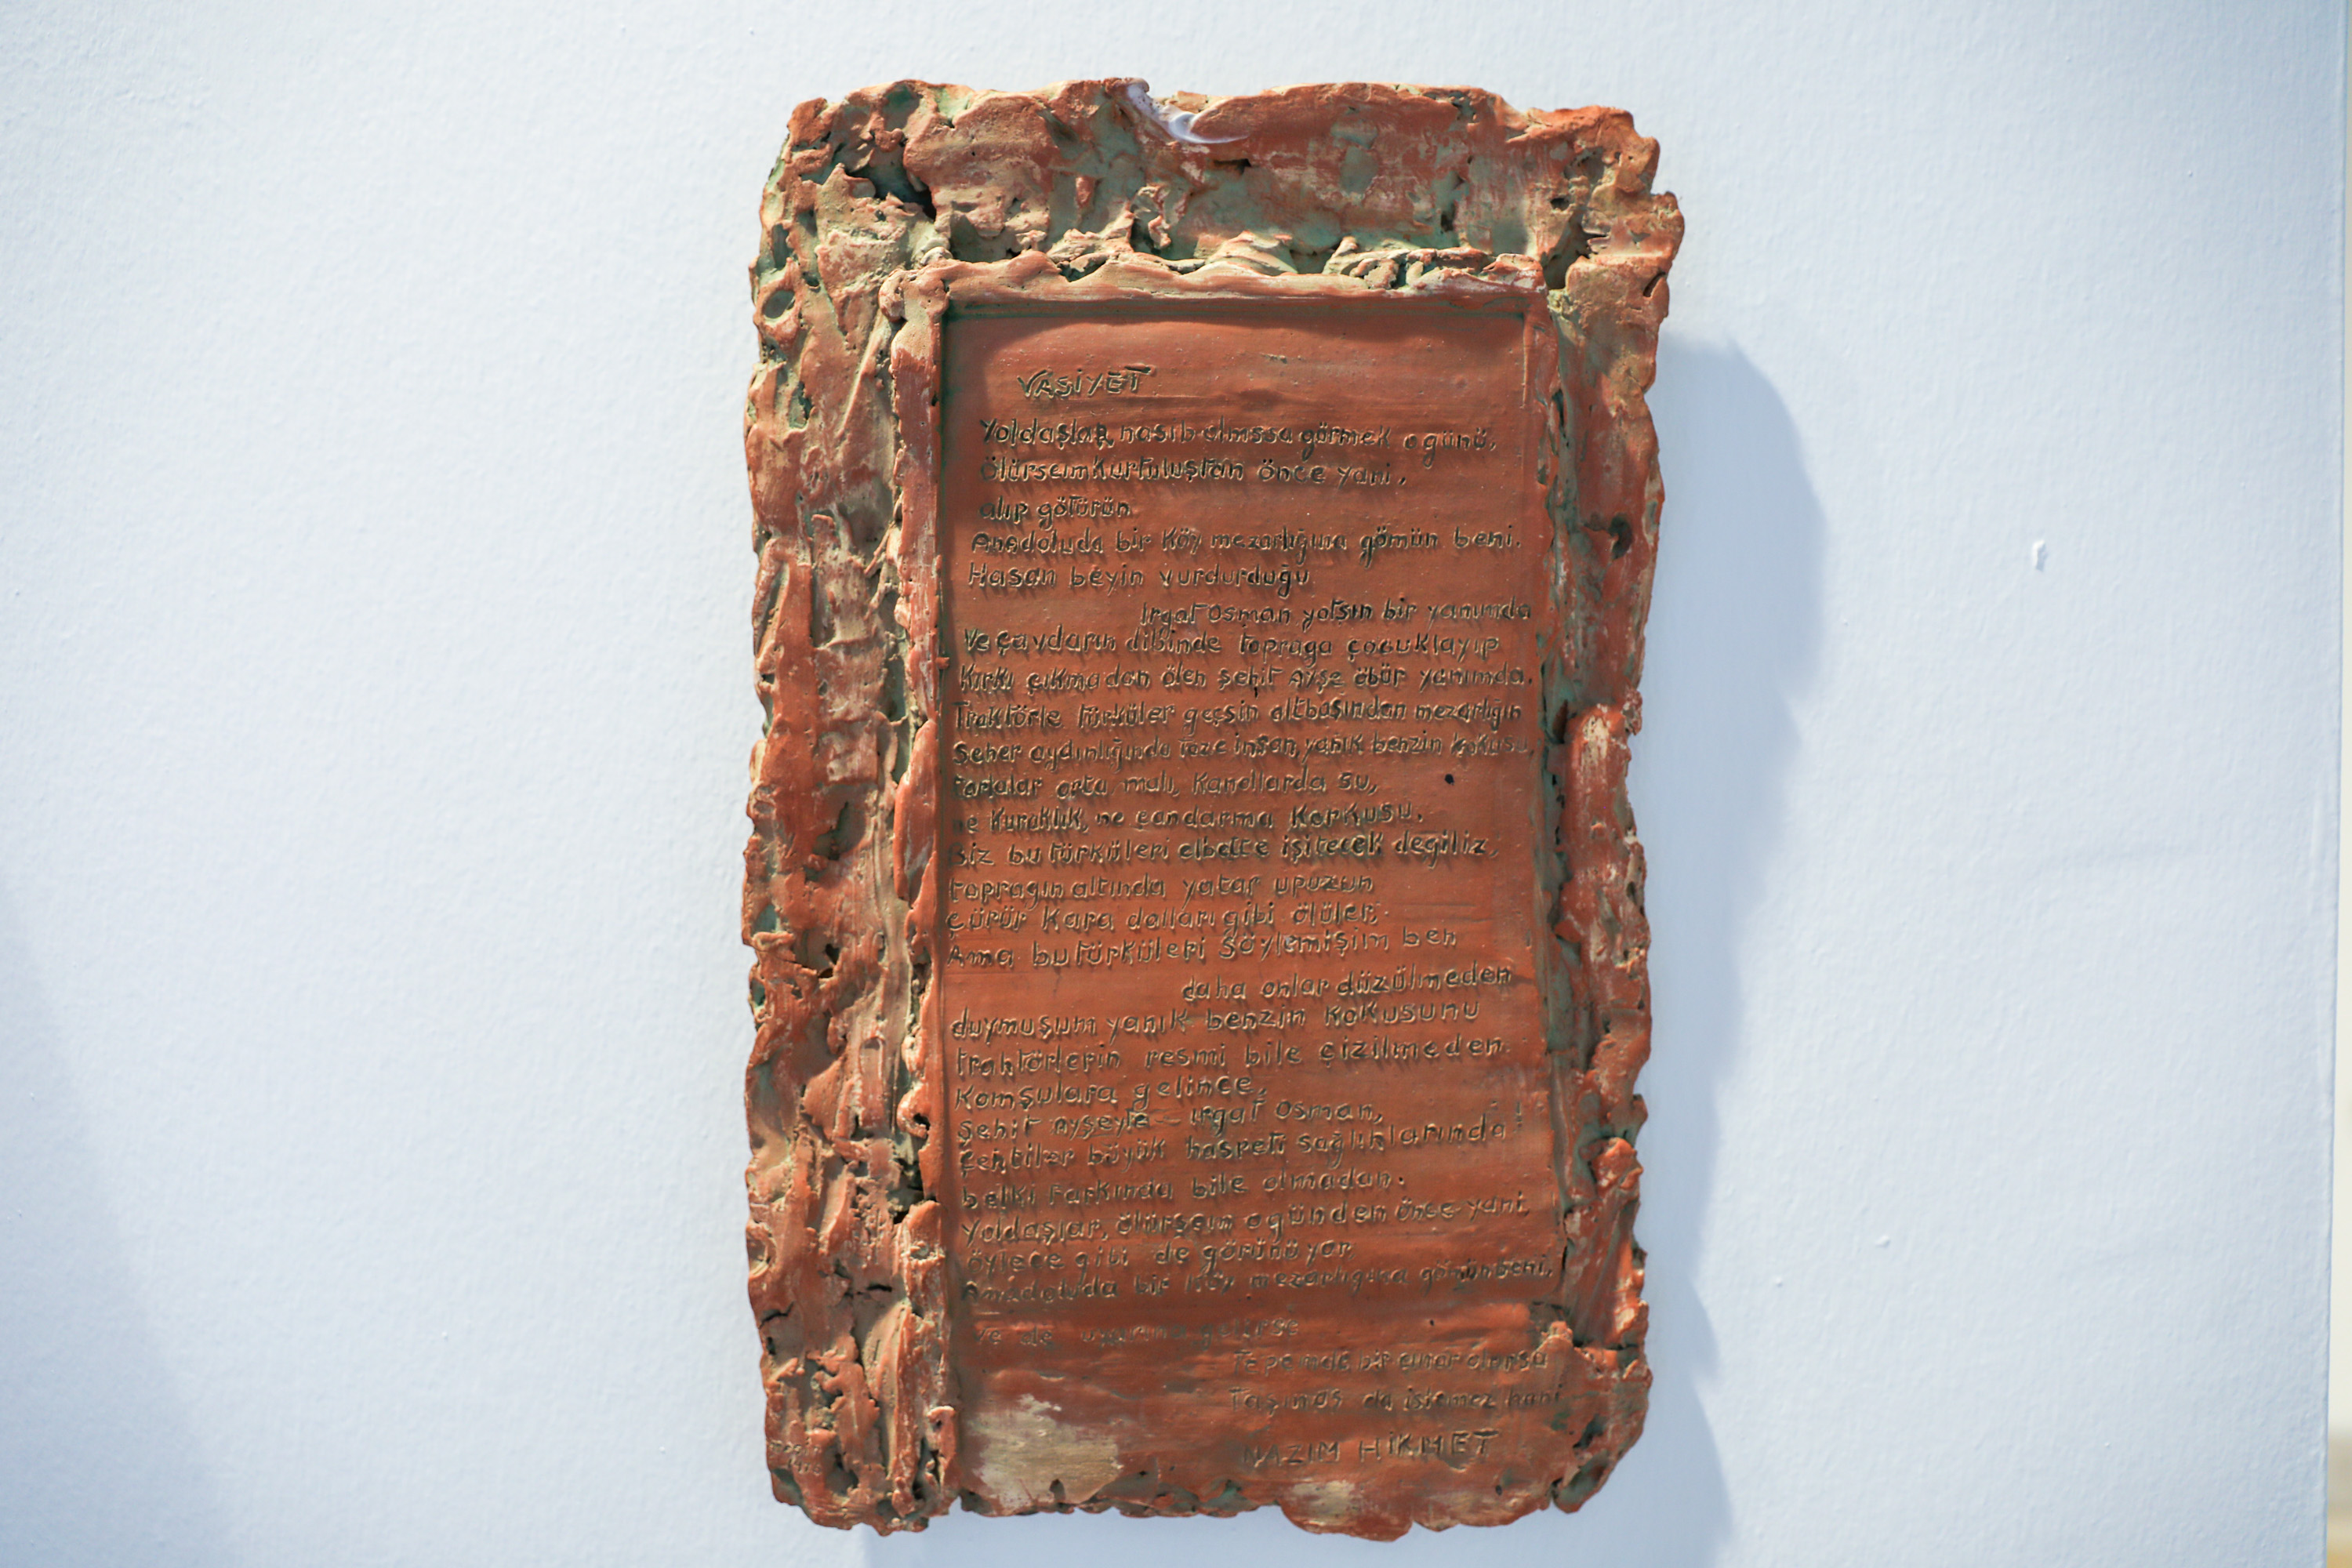 VASİYET
Yoldaşlar, nasib olmssa görmek o günü,
Ölürsem kurtuluştan önce yani,
alıp götürün
Anadoluda bir Köy mezarlığına gömün beni.
Hasan beyin vurdurduğu
Irgat Osman yatsın bir yanımda
Ve çavdarın dibinde toprağa çocuklayıp
Kırkı çıkmadan ölen şehit Ayşe öbür yanımda.
Traktörle türküler geçsin altbaşından mezarlığın
Seher aydınlığında taze insan, yanık benzin kokusu,
tarlalar orta malı, kanallarda su,
ne Kuraklık, ne candarma Korkusu.
Biz bu türküleri elbette işitecek değiliz,
toprağın altında yatar upuzun
çürür Kara dalları gibi ölüler,
Ama bu türküleri Söylemişim ben
daha onlar düzülmeden
duymuşum yanık benzin KoKusunu
traktörlerin resmi bile çizilmeden.
Komşulara gelince,
Şehit Ayşeyle ırgat Osman,
Çektiler büyük hasreti sağlıklarında!
belki farkında bile olmadan.
Yoldaşlar, ölürsem o günden önce yani,
öylece gibi de görünüyor
Anadoluda bir Köy mezarlığına gömün beni,
ve de uyarına gelirse
tepemde bir çınar olursa
Taş maş da istemez hani
NAZIM HİKMET